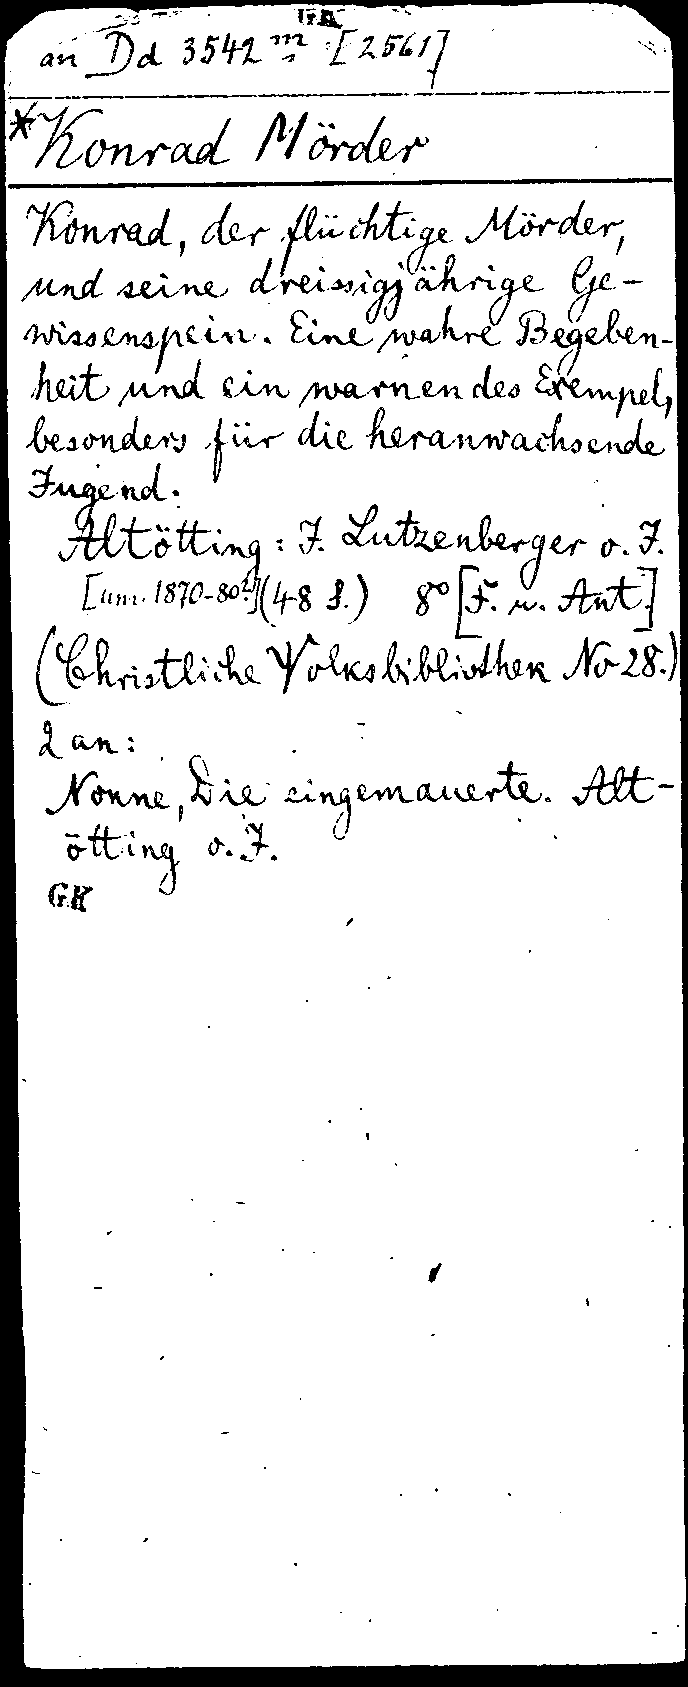 GK
an Dd 3542 m [2561]
*Konrad Mörder
Konrad, der flüchtige Mörder,
und seine dreissigjährige Ge-
wissenspein. Eine wahre Begeben-
heit und ein warnendes Exempel,
besonders für die heranwachsende
Jugend.
Altötting: J. Lutzenberger o. J.
[um. 1870-80?] (48 S.) 8° [F. u. Ant.]
(Christliche Volksbibliothek No 28.)
2 an:
Nonne, Die eingemauerte. Alt-
ötting o. J.
GK